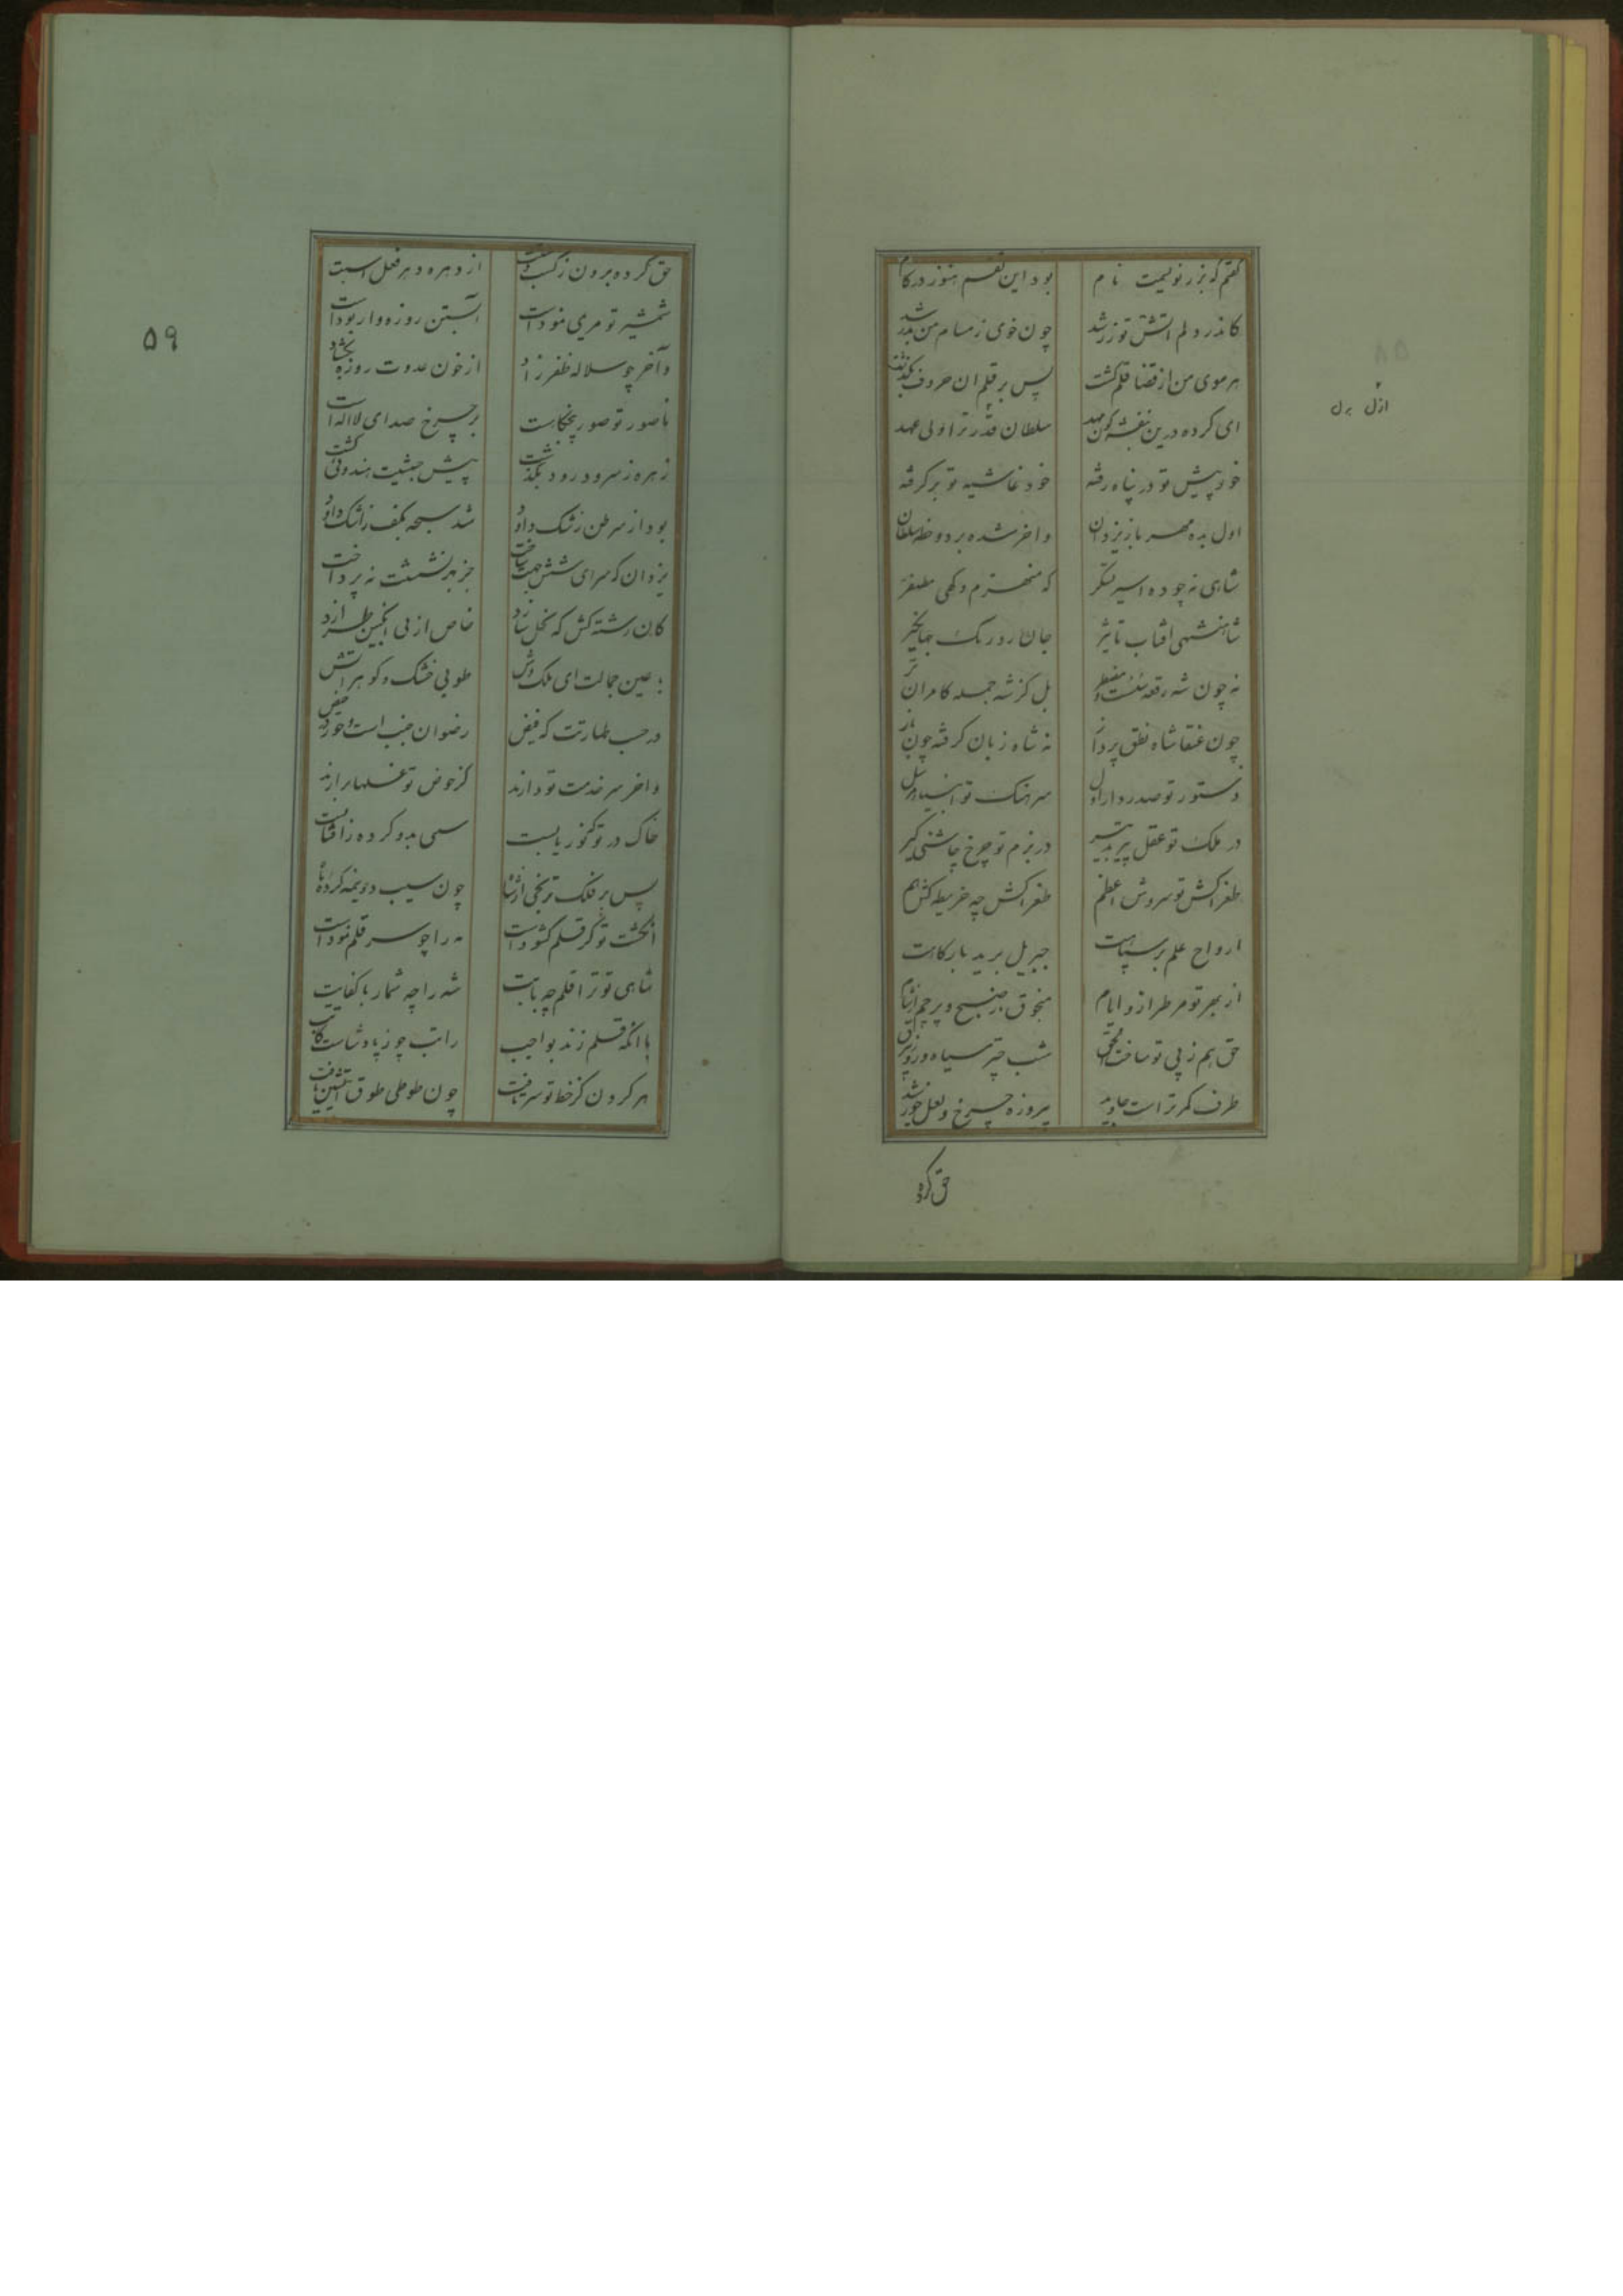 گفتم که بزر نویمت نام بود این نفسم هنوز در کام
کاندر دلم آتش تو زر شد چون خوی ز مسام من بدر شد
هر موی من از قضا قلم گشت پس بر قلم آن حروف بگذشت
ای کرده درین بنفشه گون مهد سلطان قدر ترا ولی عهد
خود پیش تو در پناه رفته خود غاشیه تو بر گرفته
اول بده مهره باز یزدان و آخر شده بر دو خطه سلطان
شاهی نه چو ده اسیر لشکر که منهزم و گهی مظفر
شاهنشهی آفتاب تاثیر جان دارو رنگ جهانگیر
نه چون شه رقعه سست و مضطر بل کز شه جمله کامران تر
چون عنقا شاه نطق پرداز نه شاه زبان گرفته چون باز
دستور تو صدر دار اول سرهنگ تو انبیاء مرسل
در ملک تو عقل پیر تدبیر در بزم تو چرخ چاشنی گیر
طغراکش تو سروش اعظم طغراکش چه خریطه کش هم
ارواح علم بر سپاهت جبریل برید بارگاهت
از بهر تو مر طراز و ایام منجوق ز صبح و پرچم از شام
حق هم ز پی تو ساخت الحق شب چتر سیاه و روز بیرق
طرف کمر تر است جاوید پیروزه چرخ و لعل خورشید
حق کرده
ازل بدل
۵۹
حق کرده برون ز کسبت از دهره و هر فعل است
شمشیر تو مریمی نمود است آبستن روزه دار بود است
و آخر چو سلاله ظفر زاد از خون عدوت روزه بگشاد
تا صور تو صور پنجگاهست بر چرخ صدای لا اله است
زهره ز سرود رود بگذشت پیش حبشیت هندوئی گشت
بود از سرطن زشک داود شد سبحه بکف ز اشک داود
یزدان که سرای شش جهت ساخت جز بهر نشستت نه پرداخت
کان رشته کش که نخل سازد خاص از پی انگبین طرازد
با عین جمالت ای ملک وش طوبی خشک و کوثر آتش
در جنب طهارتت که فیض رضوان جنب است و حور در حیض
و آخر سر خدمت تو دارند کز حوض تو غسلها بر آرند
خاک در تو کنوز یابست سمی بدو کرده ز آفتابست
پس بر فلک ترنجی از شاه چون سیب دو نیمه کرده ماه
انگشت تو گر قلم گشود است مه را چو سر قلم نمود است
شاهی تو ترا قلم چه بابت شه را چه شمار با کفایت
با آنکه قلم زند بواجب راتب چو ز پادشاست کاتب
هر گردن کز خط تو سر تافت چون طوطی طوق آتشین یافت